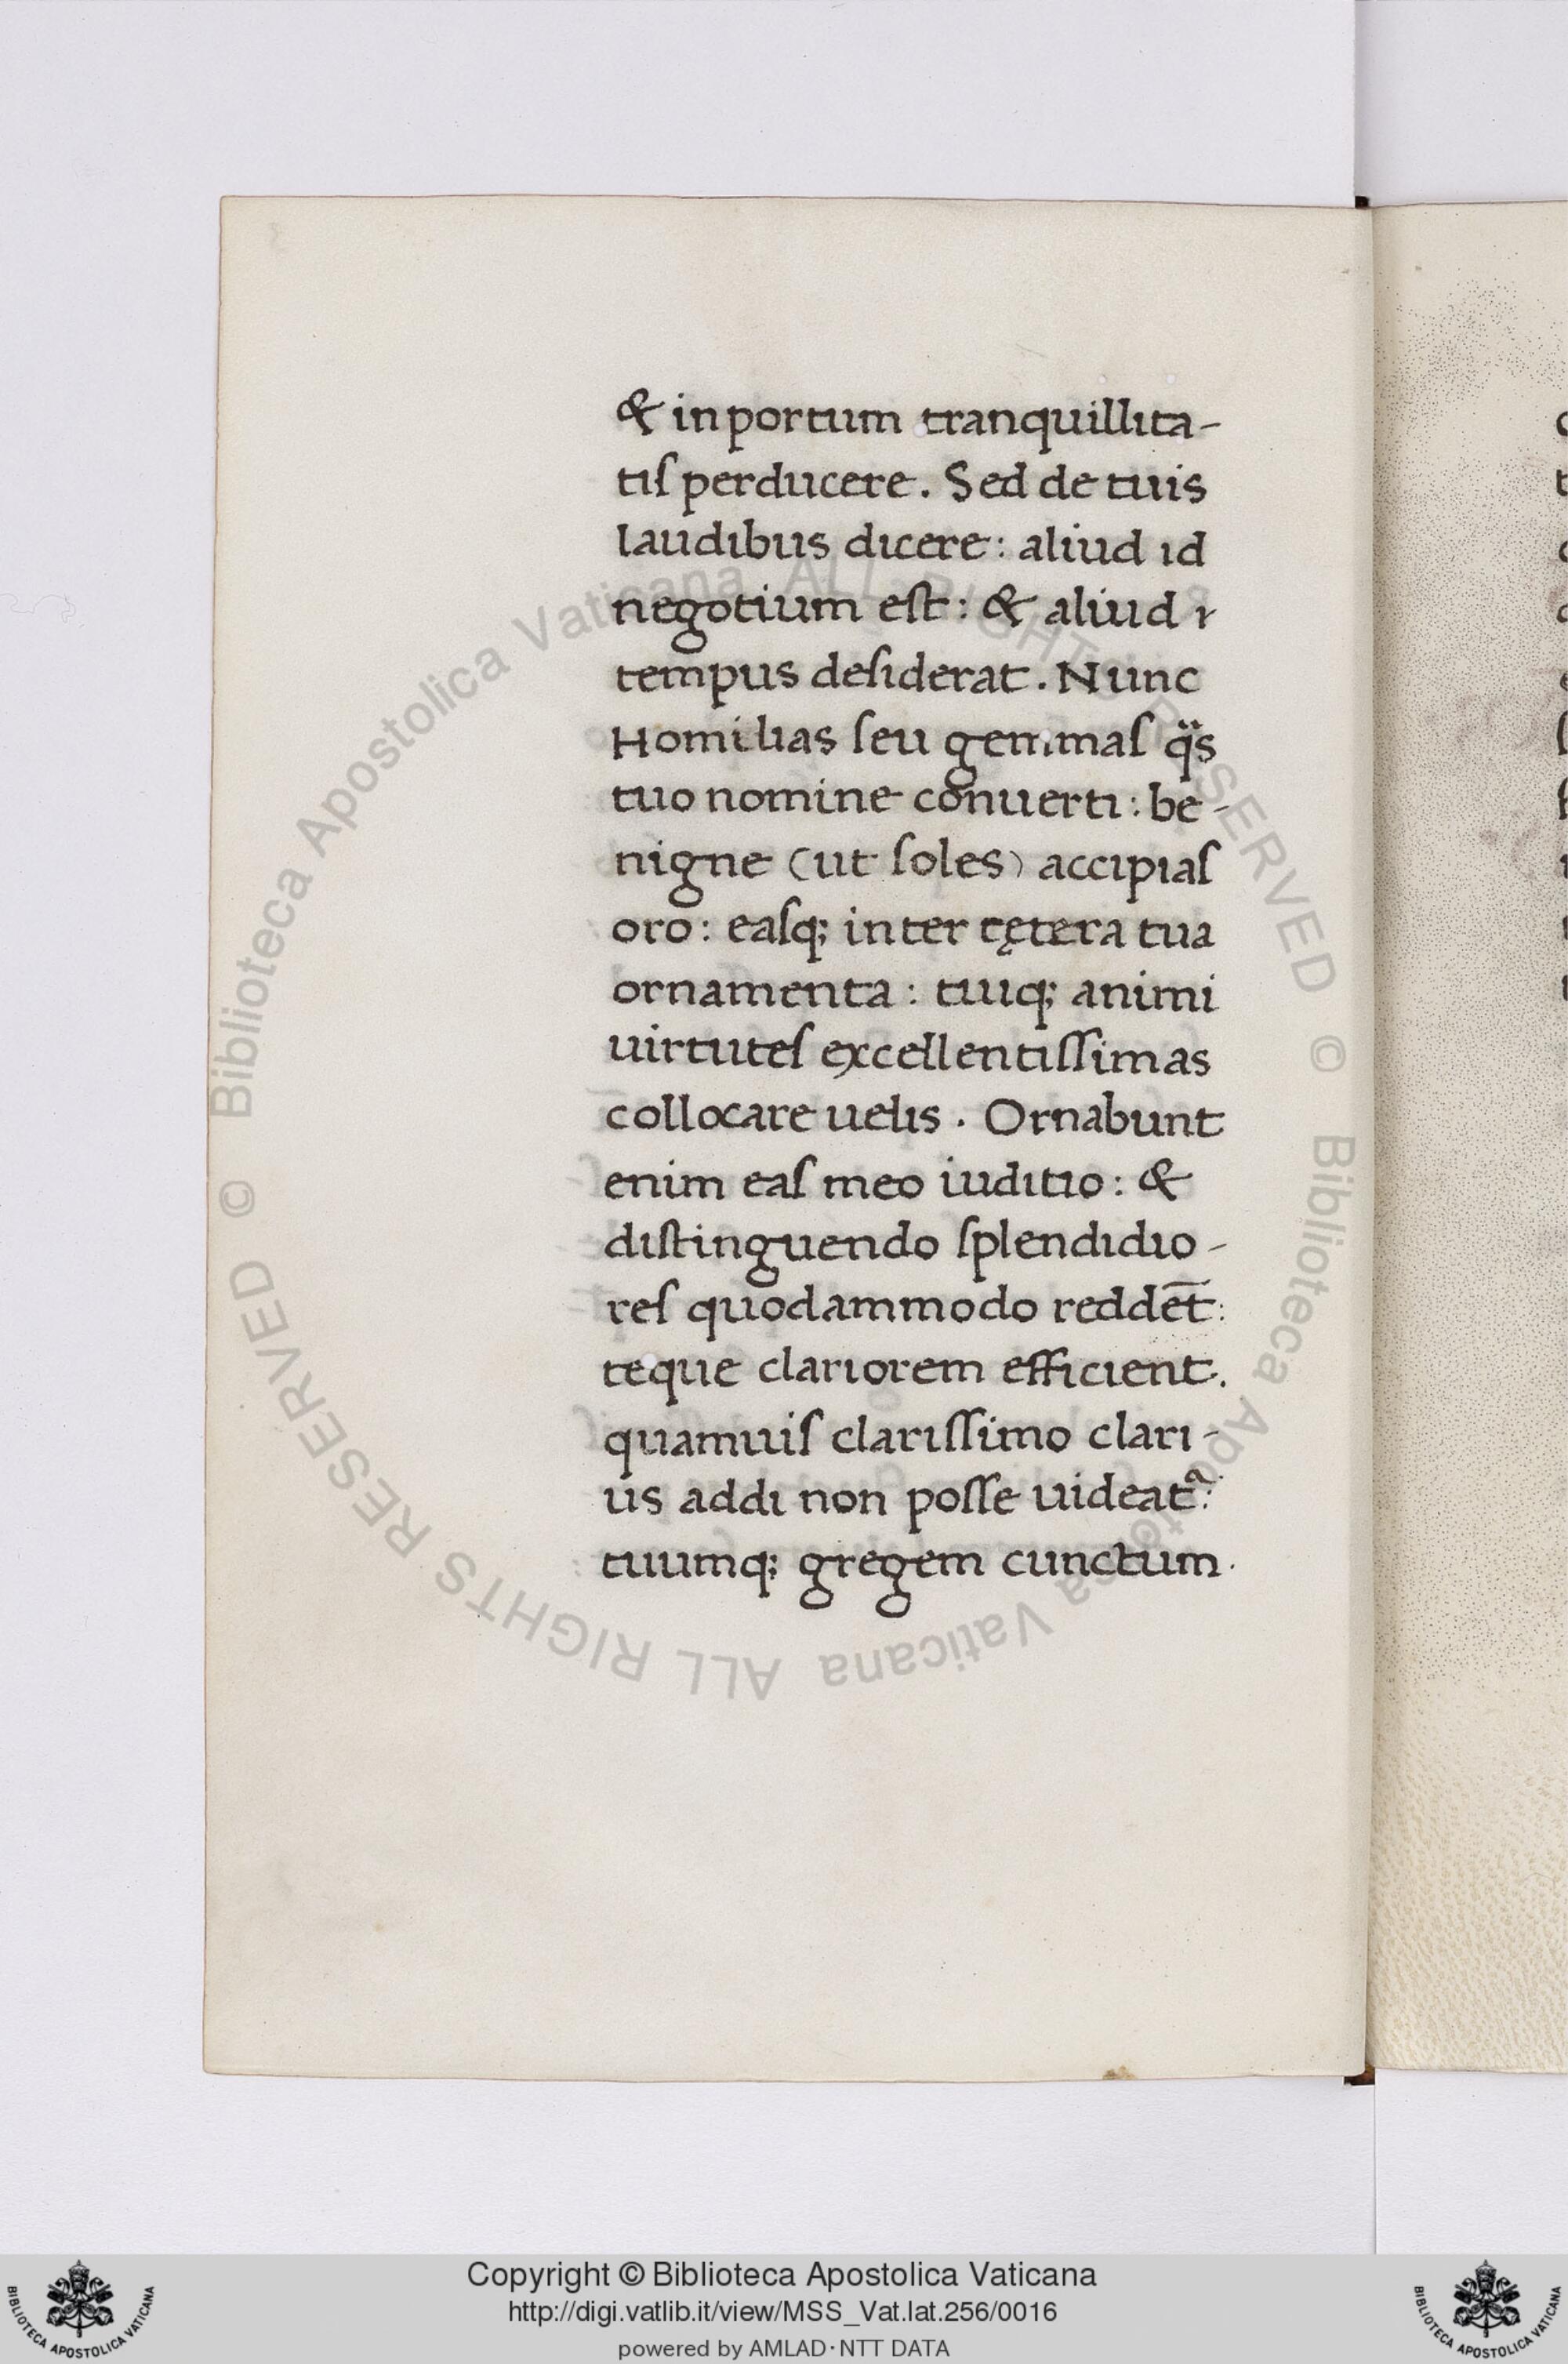 & in portum tranquillita-
tiſ perducere. Sed de tuis
laudibus dicere: aliud id
negotium eſt: & aliud
tempus deſiderat. Nunc
Homilias ſeu gemmaſ q̈s
tuo nomine conuerti: be-
nigne (ut ſoles) accipiaſ
oro: eaſq; inter cętera tua
ornamenta: tuiq; animi
uirtuteſ excellentiſſimas
collocare uelis. Ornabunt
enim eaſ meo iuditio: &
diſtinguendo ſplendidio-
reſ quodammodo reddēt:
teque clariorem efficient.
quamuiſ clariſſimo clari-
us addi non poſſe uideat᷑:
tuumq; gregem cunctum.
© Biblioteca Apostolica Vaticana ALL RIGHTS RESERVED
© Biblioteca Apostolica Vaticana ALL RIGHTS RESERVED
Copyright © Biblioteca Apostolica Vaticana
http://digi.vatlib.it/view/MSS_Vat.lat.256/0016
powered by AMLAD·NTT DATA
BIBLIOTECA APOSTOLICA VATICANA
BIBLIOTECA APOSTOLICA VATICANA